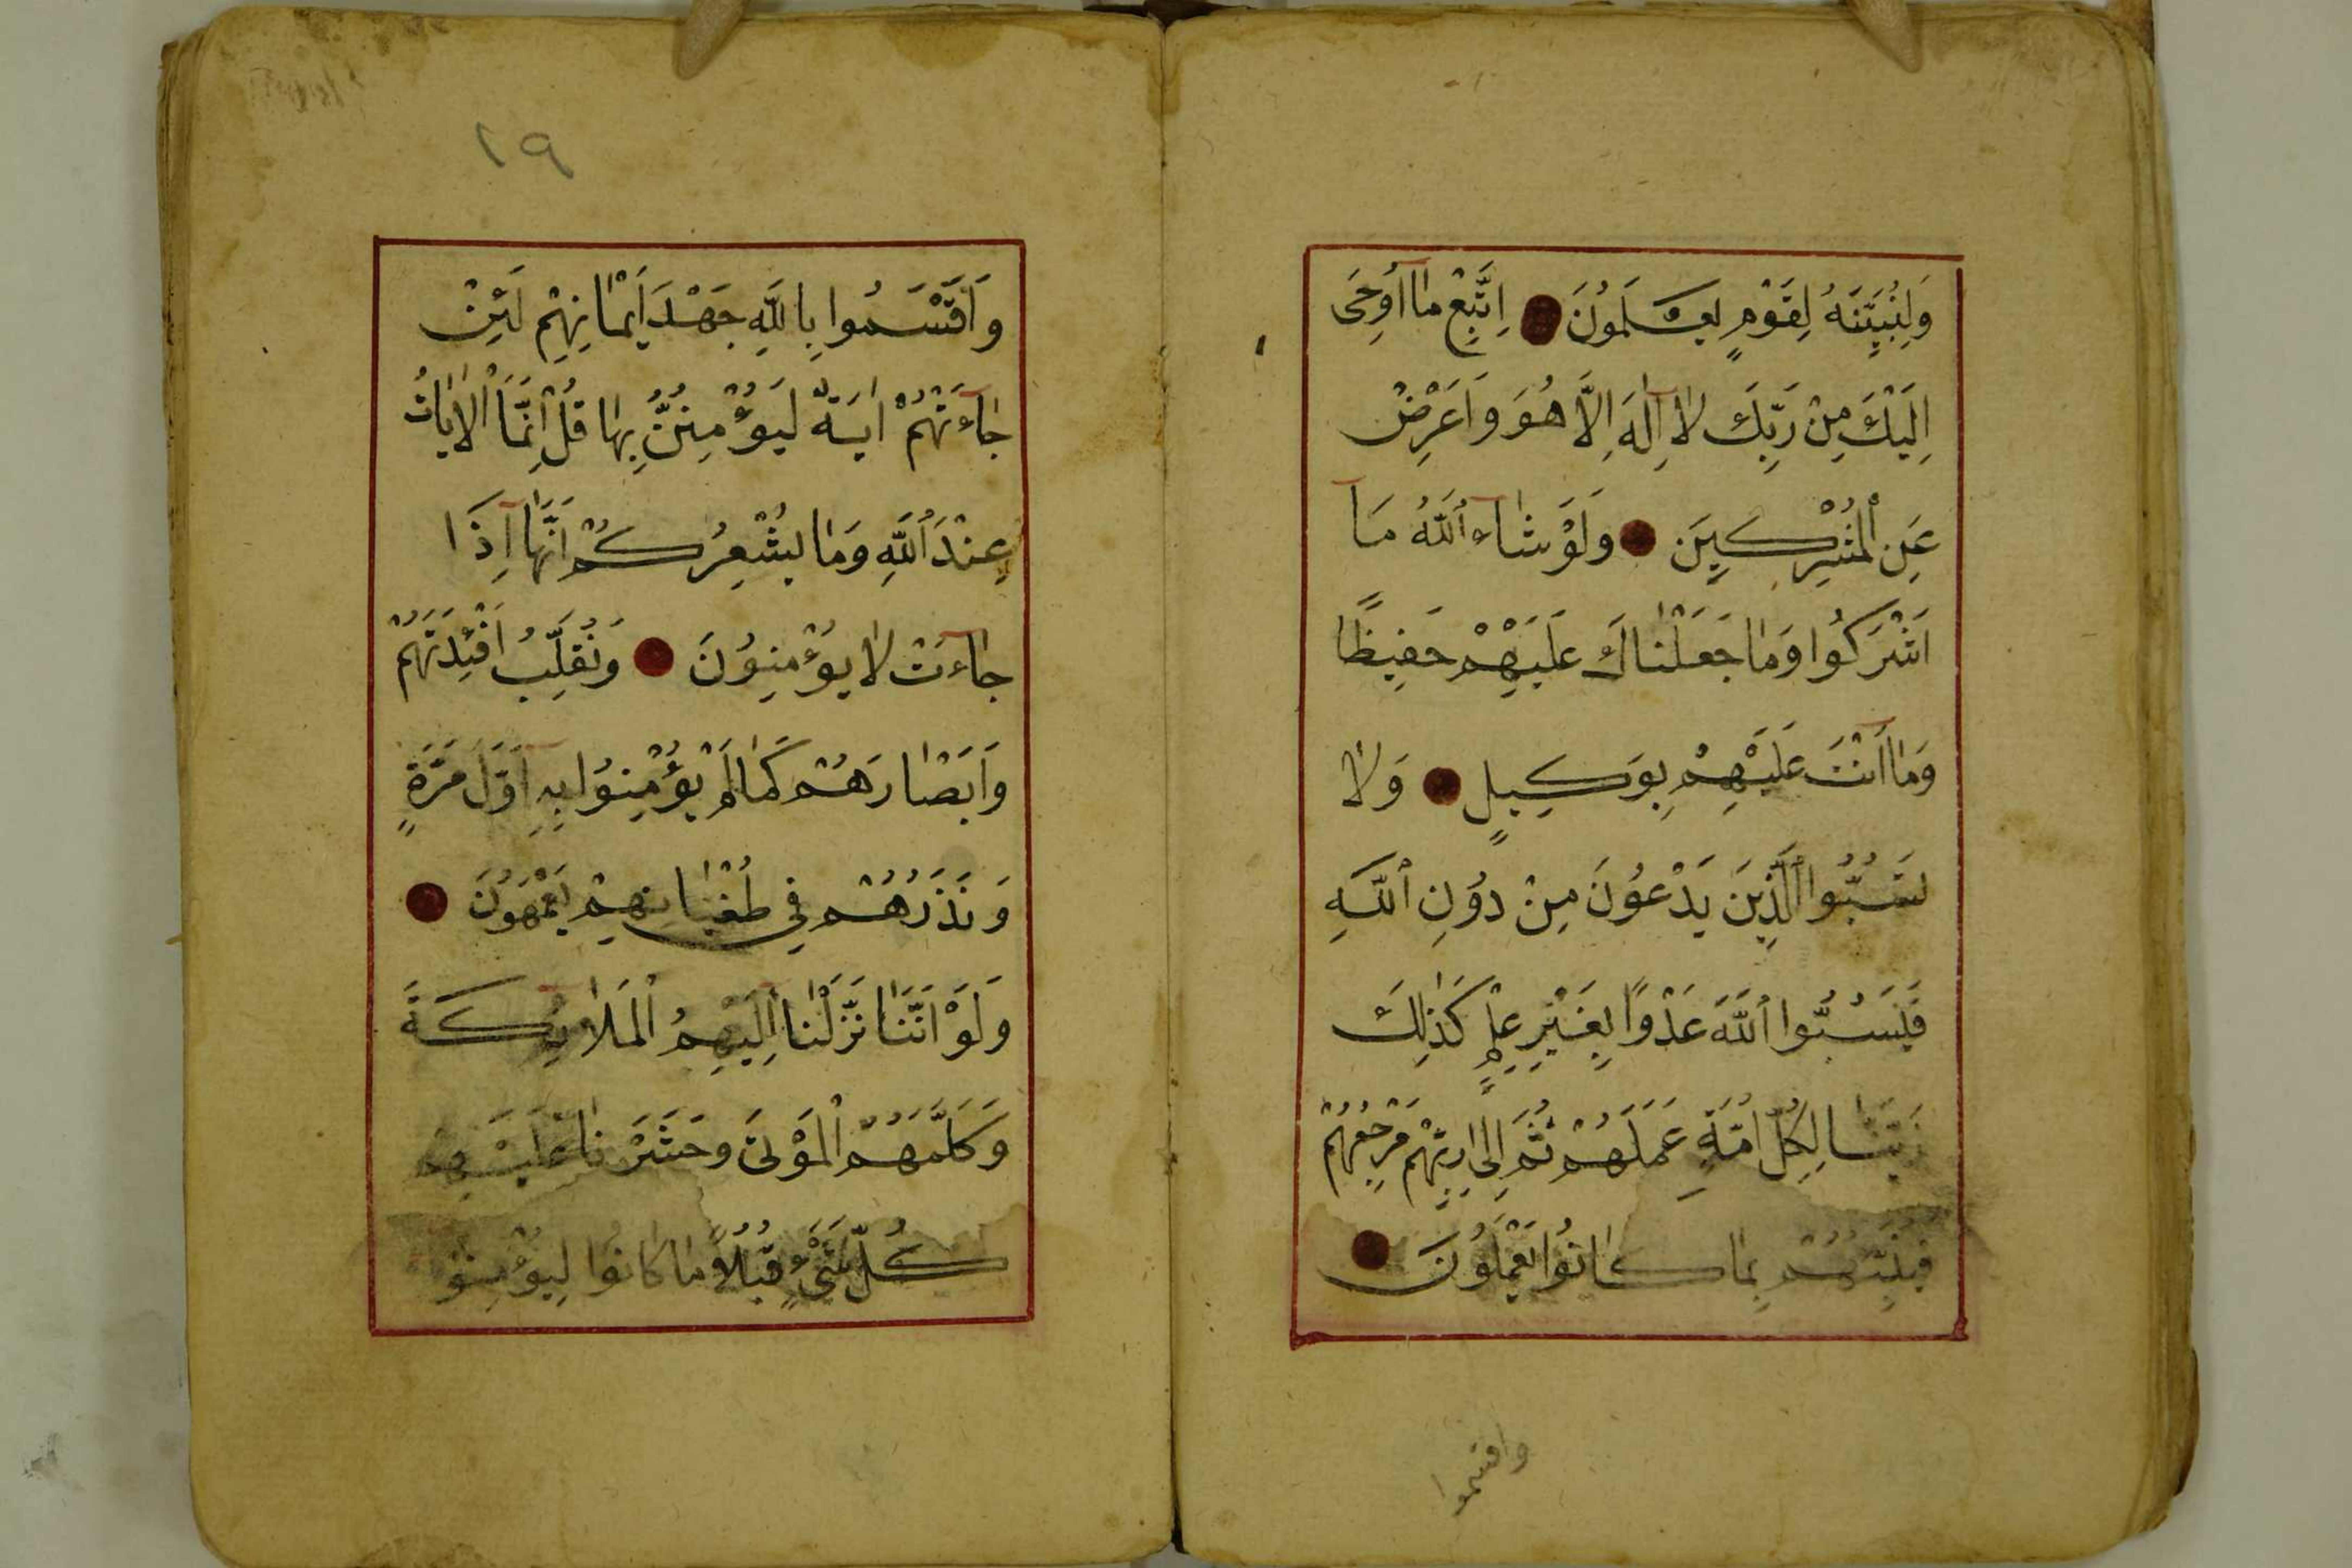 وَلِنُبَيِّنَهُ لِقَوْمٍ يَعْلَمُونَ اِتَّبِعْ مٰا اُوحِىَ
اِلَيْكَ مِنْ رَبِّكَ لاٰ اِلٰهَ اِلاَّ هُوَ وَاَعْرِضْ
عَنِ الْمُشْرِكِينَ وَلَوْ شٰاءَ اللَّهُ مَا
اَشْرَكُوا وَمٰا جَعَلْنٰاكَ عَلَيْهِمْ حَفِيظًا
وَمٰا اَنْتَ عَلَيْهِمْ بِوَكِيلٍ وَلاٰ
تَسُبُّوا الَّذِينَ يَدْعُونَ مِنْ دُونِ اللَّهِ
فَيَسُبُّوا اللَّهَ عَدْوًا بِغَيْرِ عِلْمٍ كَذٰلِكَ
زَيَّنَّا لِكُلِّ اُمَّةٍ عَمَلَهُمْ ثُمَّ اِلىٰ رَبِّهِمْ مَرْجِعُهُمْ
فَيُنَبِّئُهُمْ بِمٰا كٰانُوا يَعْمَلُونَ
واقسموا
١٩
وَاَقْسَمُوا بِاللَّهِ جَهْدَ اَيْمٰانِهِمْ لَئِنْ
جٰاءَتْهُمْ اٰيَةٌ لَيُؤْمِنُنَّ بِهٰا قُلْ اِنَّمَا الْاٰيٰاتُ
عِنْدَ اللَّهِ وَمٰا يُشْعِرُكُمْ اَنَّهٰا اِذَا
جٰاءَتْ لاٰ يُؤْمِنُونَ وَنُقَلِّبُ اَفْئِدَتَهُمْ
وَاَبْصٰارَهُمْ كَمٰا لَمْ يُؤْمِنُوا بِهِ اَوَّلَ مَرَّةٍ
وَنَذَرُهُمْ فِي طُغْيٰانِهِمْ يَعْمَهُونَ
وَلَوْ اَنَّنَا نَزَّلْنٰا اِلَيْهِمُ الْمَلاٰئِكَةَ
وَكَلَّمَهُمُ الْمَوْتىَ وَحَشَرْنٰا عَلَيْهِمْ
كُلَّ شَىْءٍ قُبُلًا مٰا كٰانُوا لِيُؤْمِنُوا